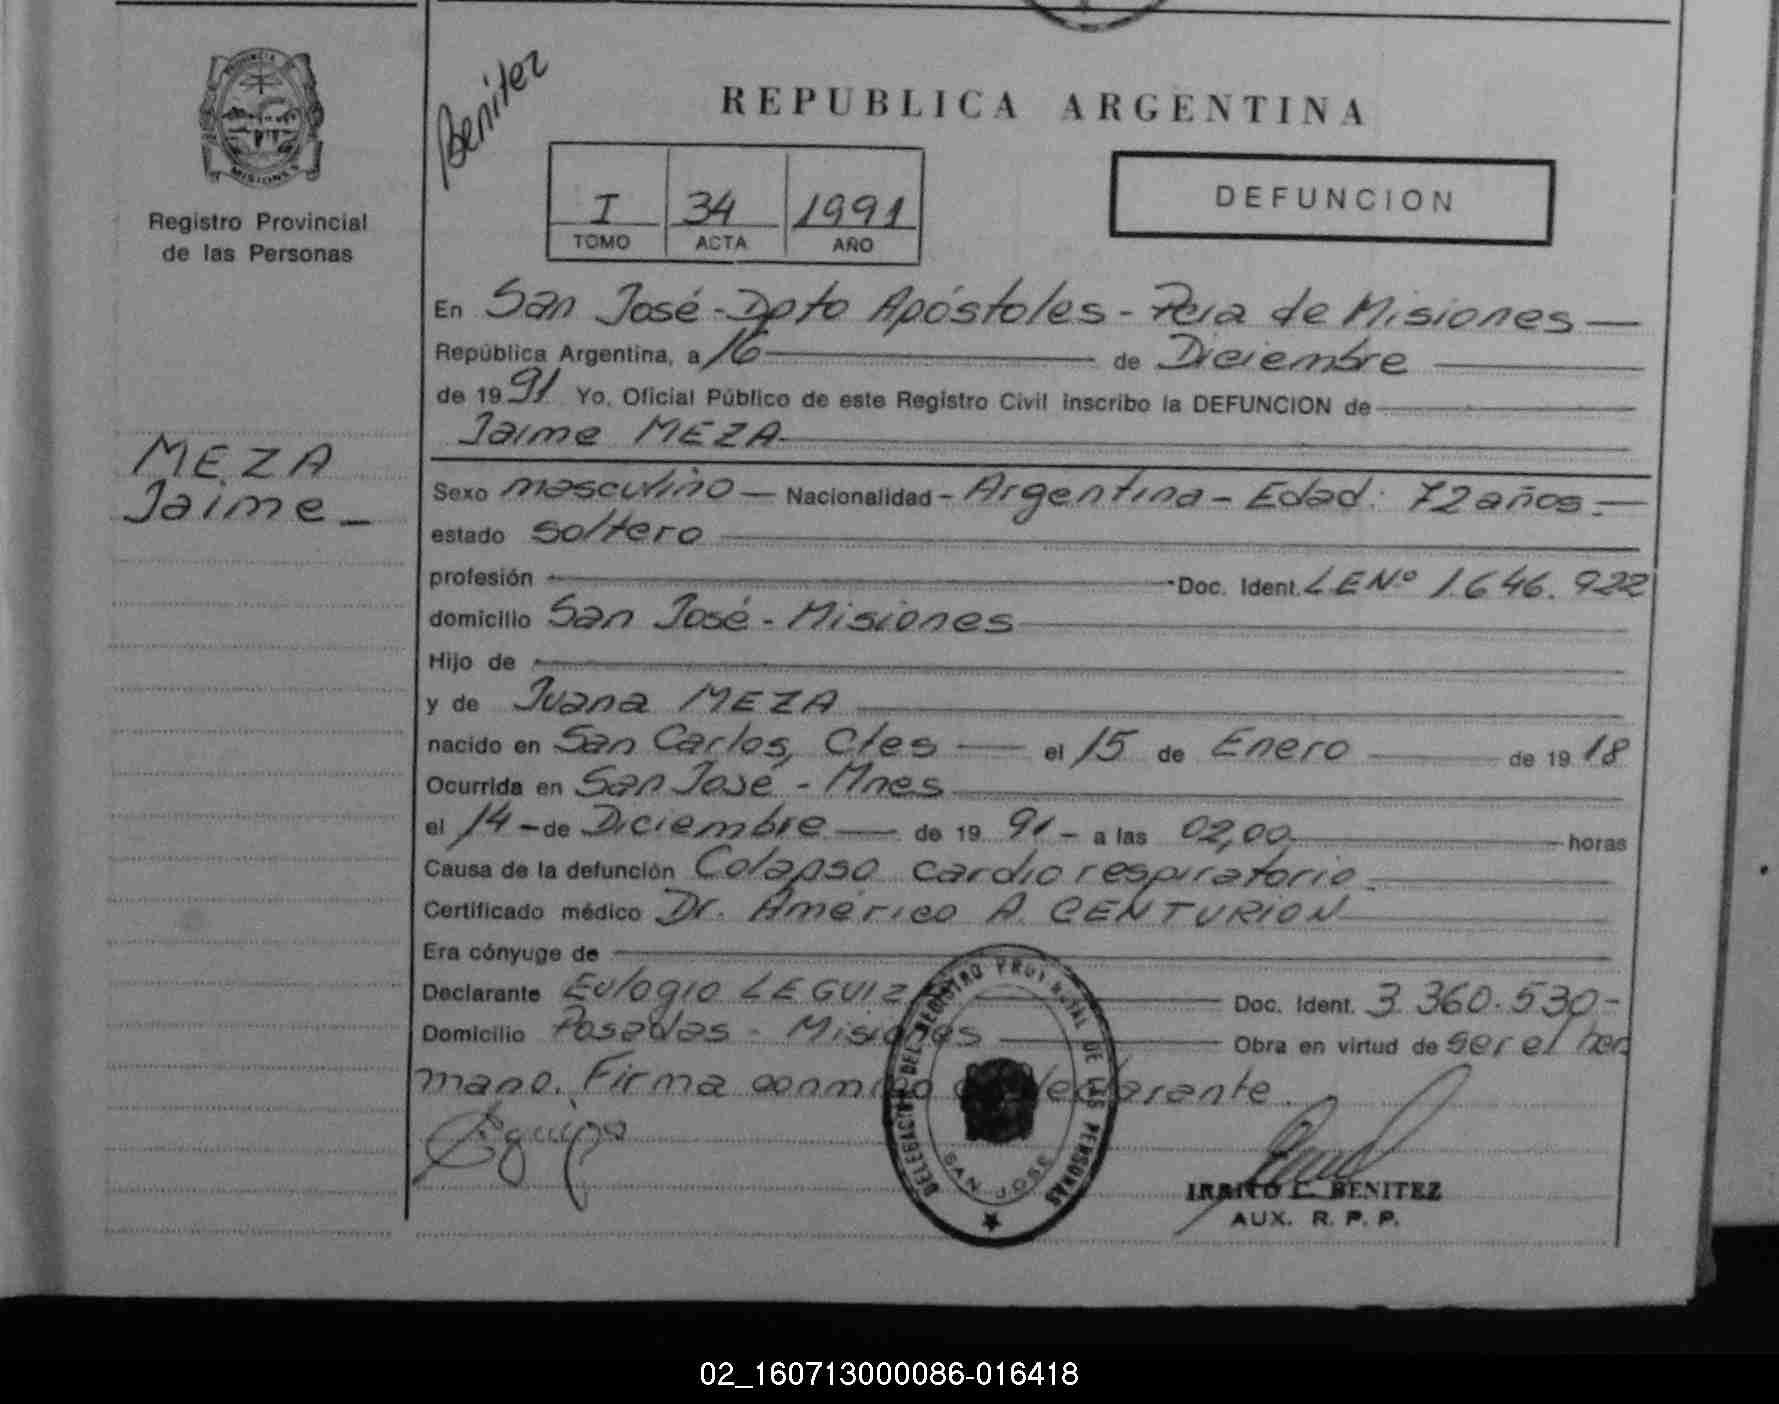 PROVINCIA
MISIONES
Registro Provincial
de las Personas
MEZA
Jaime
Benitez
REPUBLICA ARGENTINA
I 34 1991
TOMO ACTA AÑO
DEFUNCION
En San José - Dpto Apóstoles - Pcia de Misiones
República Argentina, a 16 de Diciembre
de 1991 Yo, Oficial Público de este Registro Civil inscribo la DEFUNCION de
Jaime MEZA
Sexo masculino Nacionalidad - Argentina - Edad: 72 años.
estado soltero
profesión Doc. Ident. LE Nº 1.646.922
domicilio San José - Misiones
Hijo de
y de Juana MEZA
nacido en San Carlos, Ctes el 15 de Enero de 1918
Ocurrida en San José - Mnes
el 14 - de Diciembre de 1991 - a las 02,00 horas
Causa de la defunción Colapso cardiorespiratorio.
Certificado médico Dr. Américo A. CENTURION
Era cónyuge de
Declarante Eulogio Doc. Ident. 3.360.530-
Domicilio Posadas - Misiones Obra en virtud de ser el her
mano. Firma conmigo declarante.
DELEGACION DEL REGISTRO PROVINCIAL DE LAS PERSONAS
SAN JOSE
BENITEZ
AUX. R. P. P.
02_160713000086-016418